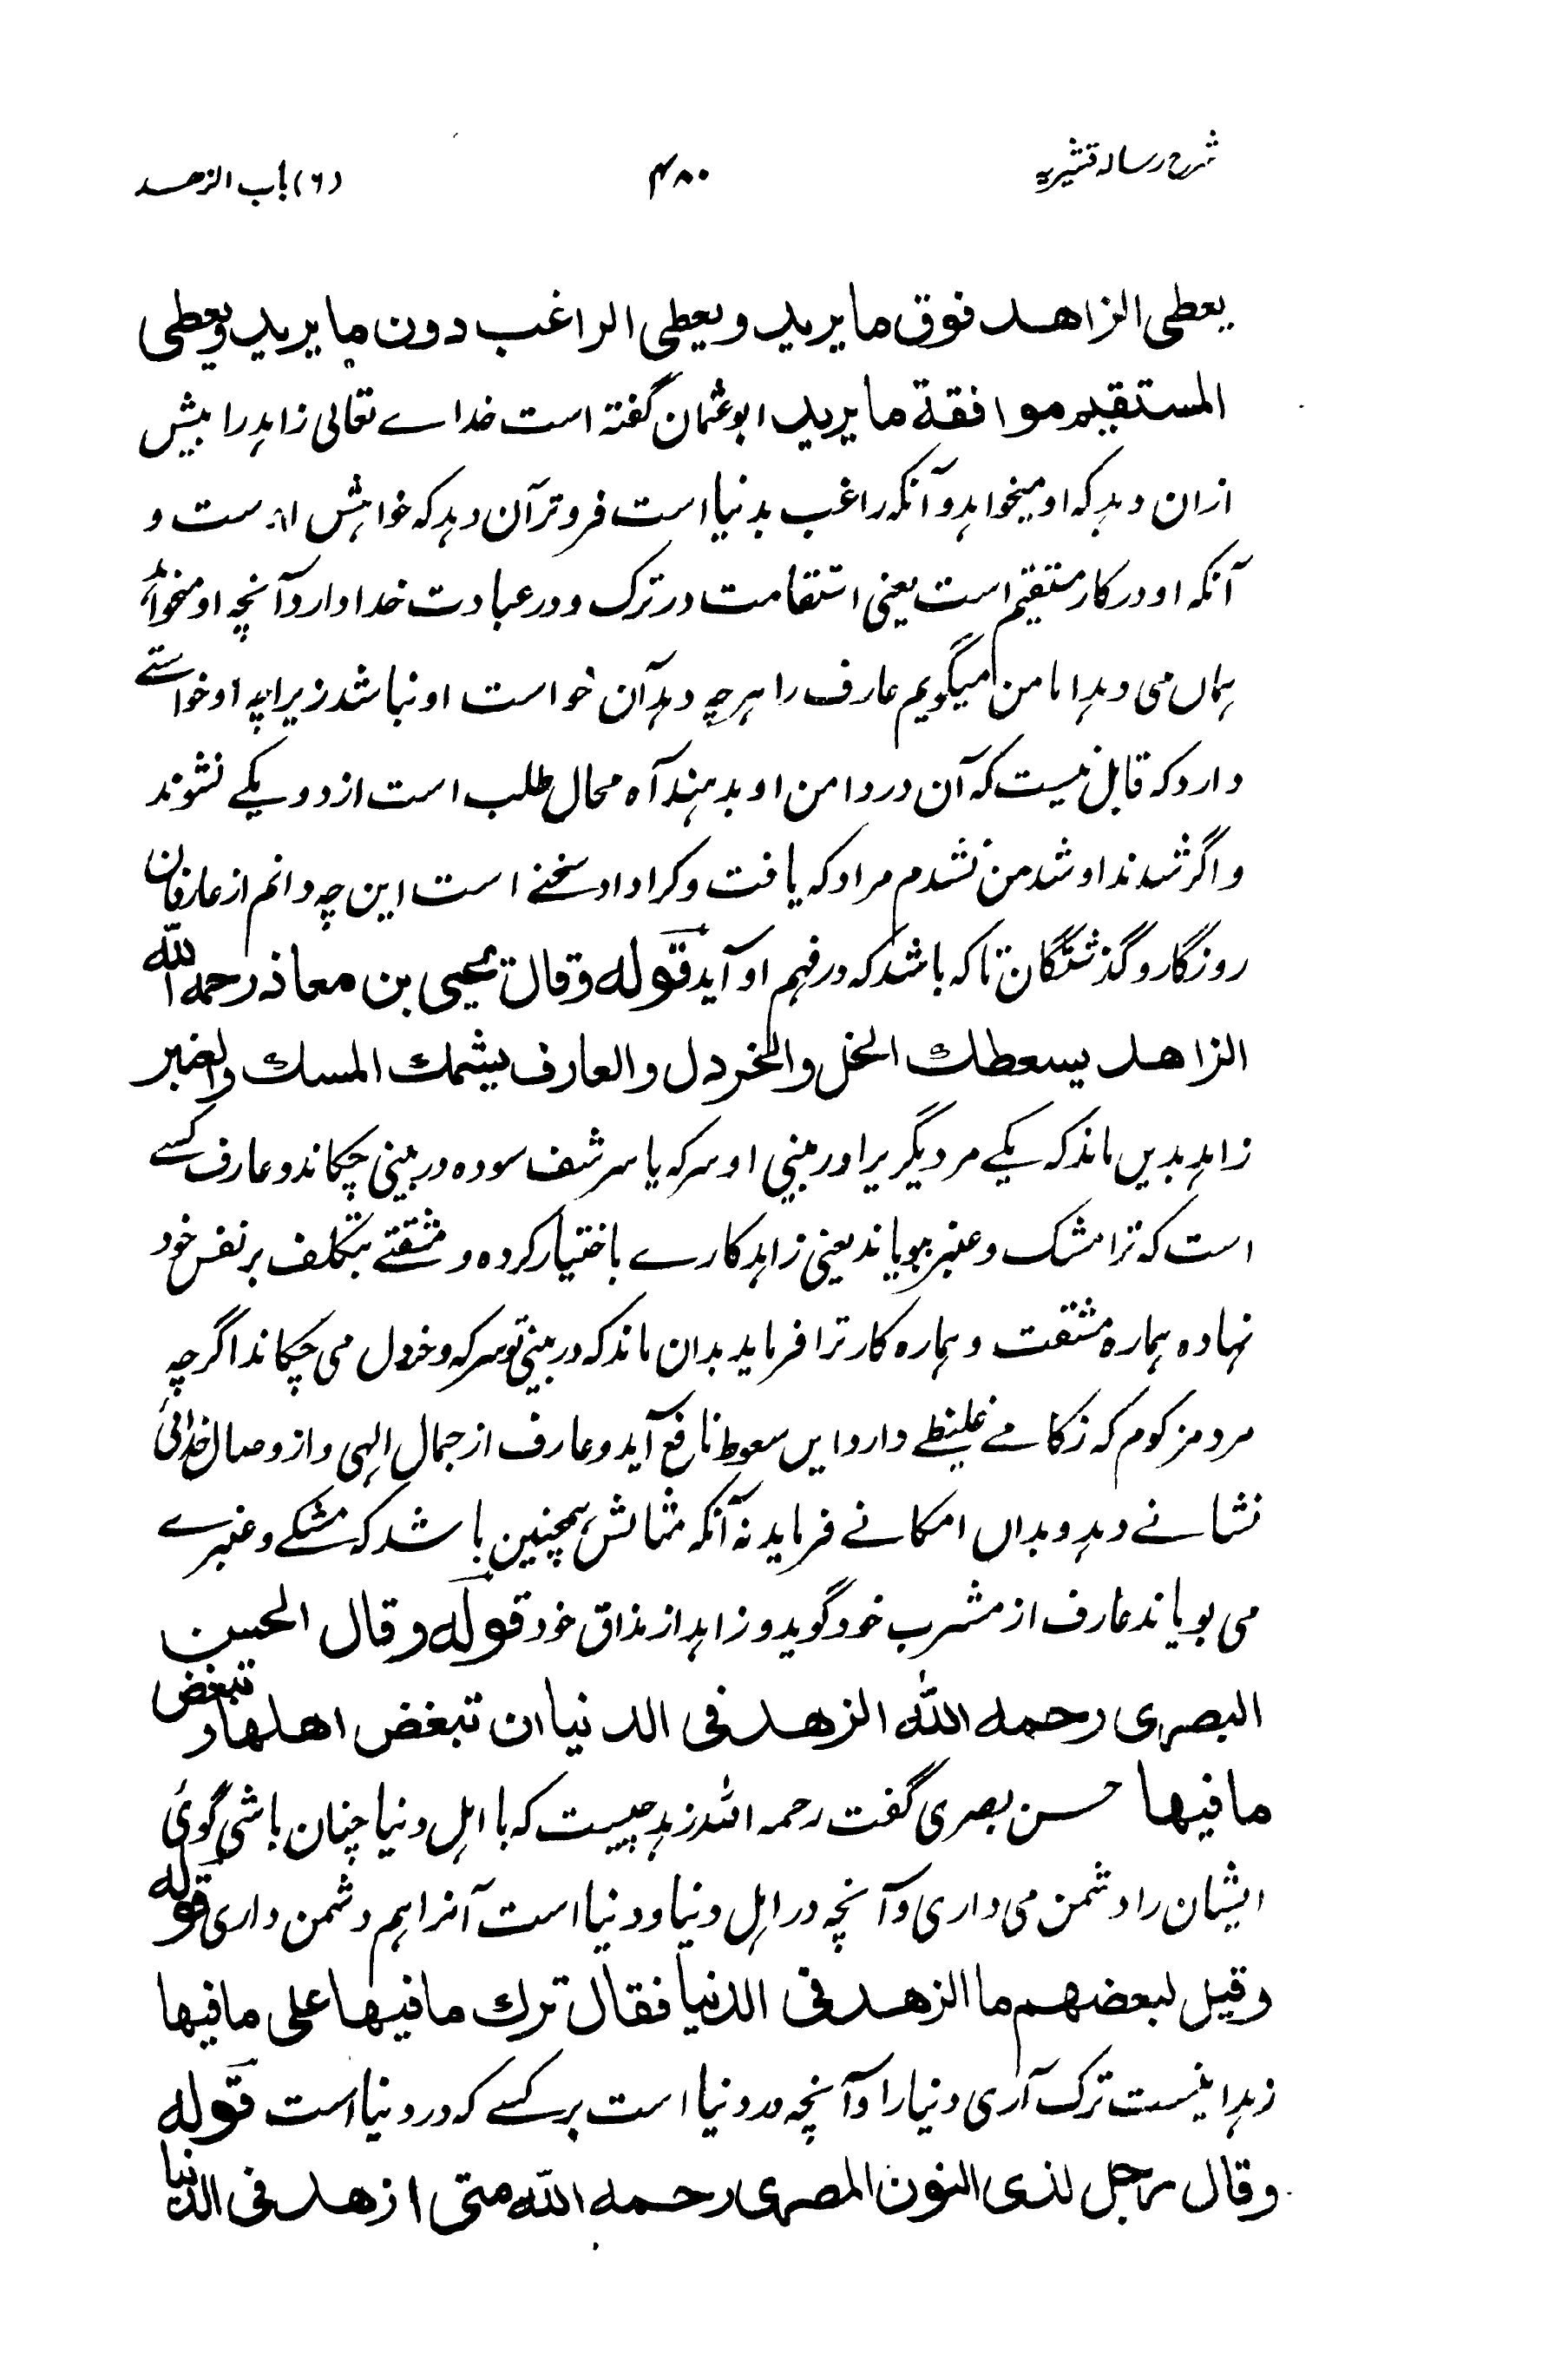 شرح رسالہ قشیریہ
۴۸۰
(۶) باب الزھد
یعطی الزاھد فوق ما یرید ویعطی الراغب دون ما یرید ویعطی
المستقیم موافقة ما یرید ابوعثمان گفتہ است خداے تعالی زاہد را بیش
ازان دہد کہ او میخواہد و آنکہ راغب بدنیا است فروتر آن دہد کہ خواہش است و
آنکہ او در کار مستقیم است یعنی استقامت در ترک و در عبادت خدا دارد آنچہ او میخواہد
ہماں می دہد اما من میگویم عارف را ہرچہ دہد آن خواست او نباشد زیراچہ او خواستے
دارد کہ قابل نیست کہ آن در دامن او بدہند آہ محال طلب است از دو یکے نشوند
و اگر شدند او شد من نشدم مراد کہ یافت و کرا داد سخنے است این چہ دانم از عارفان
روزگار و گذشتگان تا کہ باشد کہ در فہم او آید قولہ وقال یحیی بن معاذ رحمہ اللہ
الزاھد یسعطك الخل والخردل والعارف یشمك المسك والعنبر
زاہد بدیں ماند کہ یکے مر دیگر یرا در بینی او سرکہ یا سرشف سودہ در بینی چکاند و عارف کسے
است کہ ترا مشک و عنبر بویاند یعنی زاہد کارے باختیار کردہ و مشقتے بتکلف بر نفس خود
نہادہ ہمارہ مشقت و ہمارہ کار ترا فرماید بدان ماند کہ در بینی تو سرکہ و خردل می چکاند اگرچہ
مرد مزکوم کہ زکامے غلیظے دارد ایں سعوط نافع آید و عارف از جمال الہی و از وصال خدائی
نشانے دہد و بداں امکانے فرماید نہ آنکہ مثالش ہمچنین باشد کہ مشکے و عنبرے
می بویاند عارف از مشرب خود گوید و زاہد از مذاق خود قولہ وقال الحسن
البصری رحمہ اللہ الزھد فی الدنیا ان تبغض اھلھا و تبغض
ما فیھا حسن بصری گفت رحمہ اللہ زہد چیست کہ با اہل دنیا چنان باشی گوئی
ایشان را دشمن می داری و آنچہ در اہل دنیا و دنیا است آنرا ہم دشمن داری قولہ
وقیل لبعضھم ما الزھد فی الدنیا فقال ترك ما فیھا علی ما فیھا
زہد اینست ترک آری دنیا را و آنچہ در دنیا است بر کسے کہ در دنیا است قولہ
وقال رجل لذی النون المصری رحمہ اللہ متی ازھد فی الدنیا